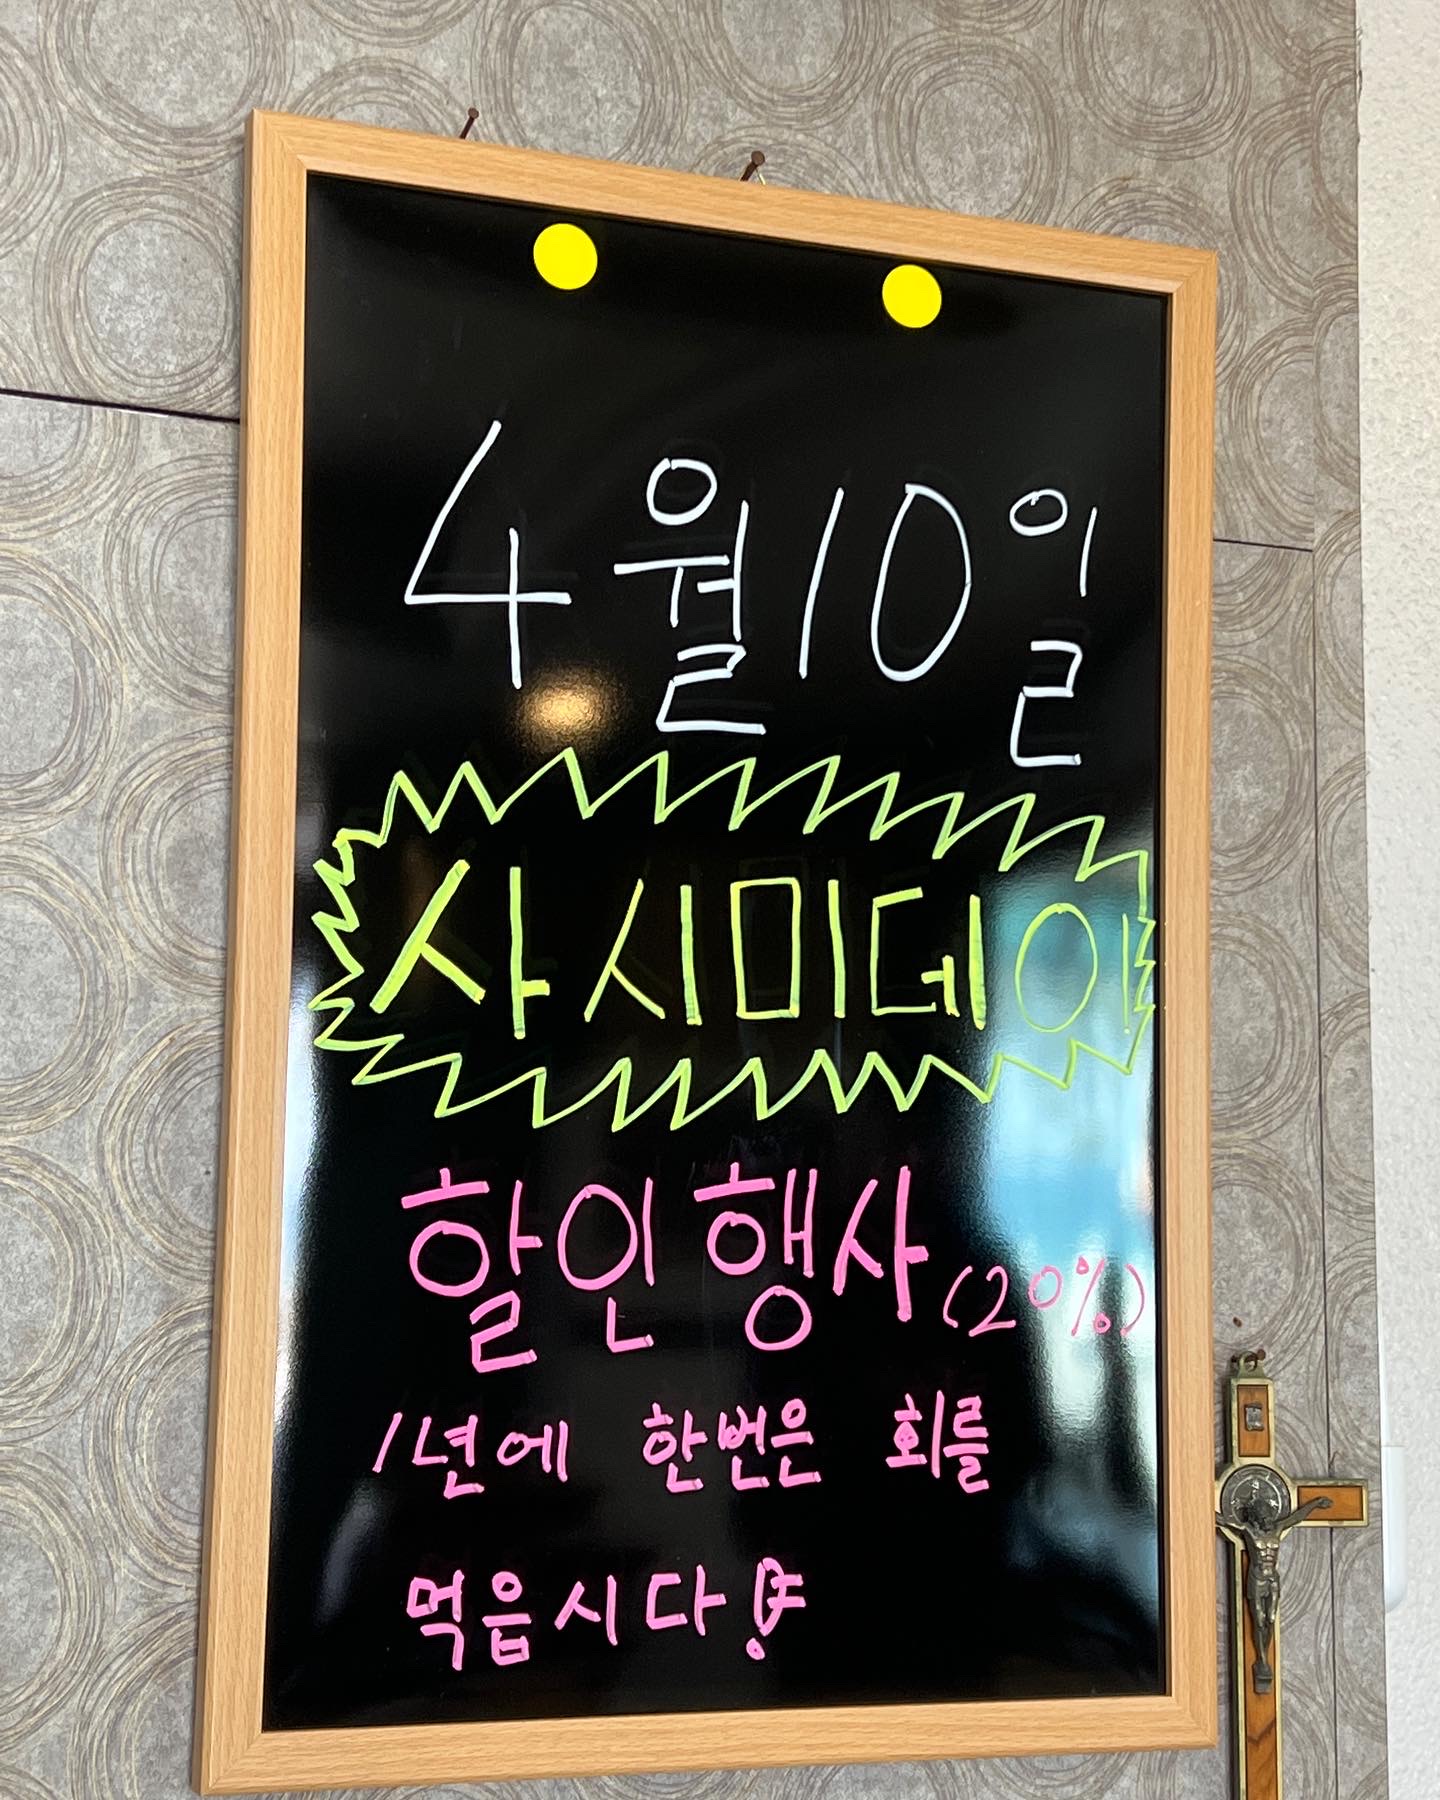 4월10일
사시미데이
할인행사(20%)
1년에 한번은 회를
먹읍시다!